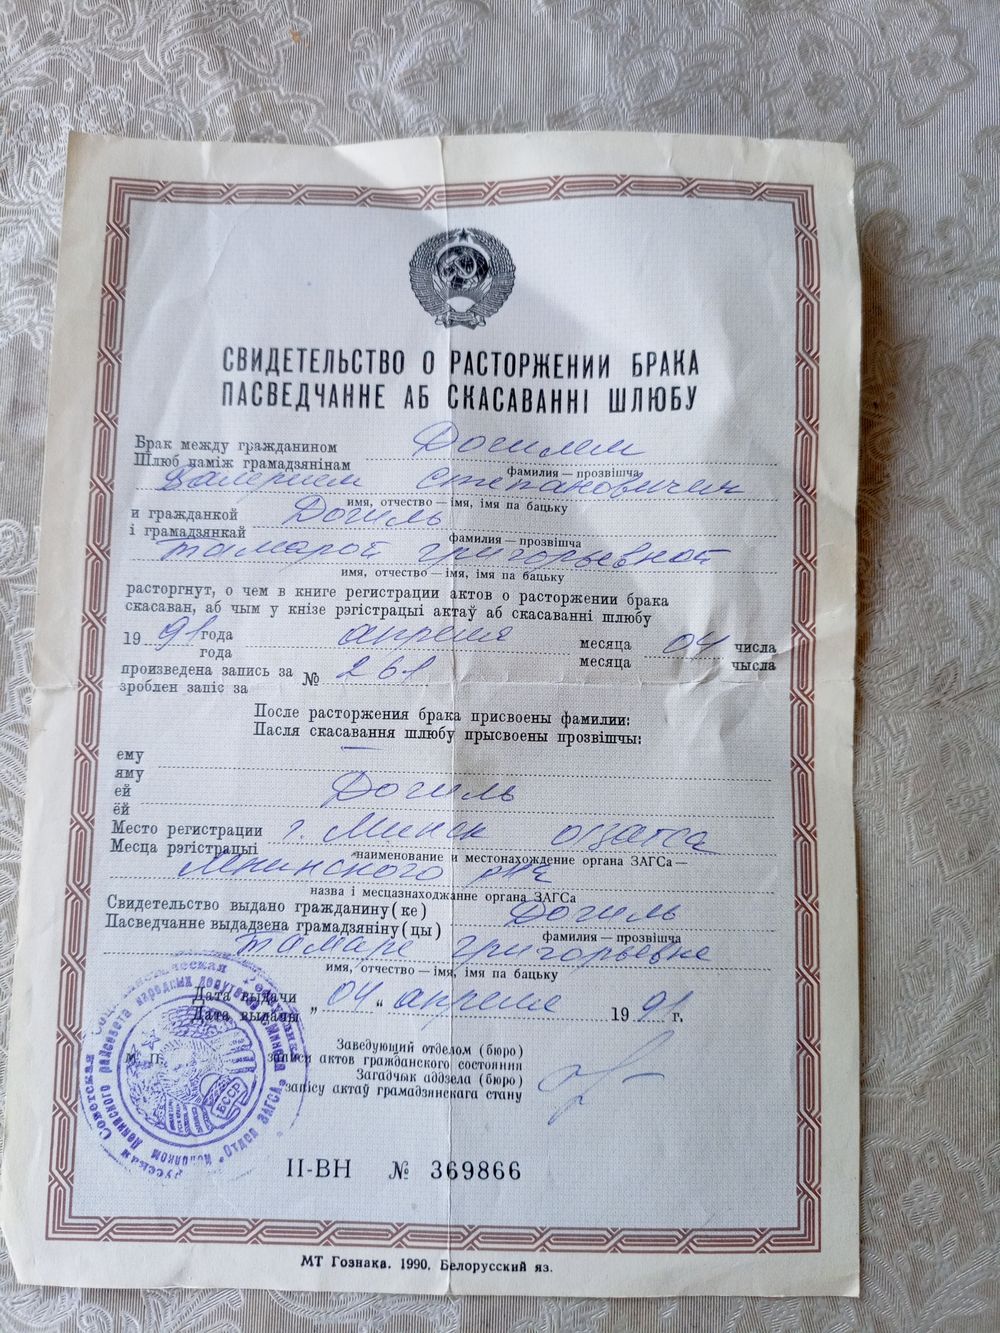 СВИДЕТЕЛЬСТВО О РАСТОРЖЕНИИ БРАКА
ПАСВЕДЧАННЕ АБ СКАСАВАННІ ШЛЮБУ
Брак между гражданином Догилем
Шлюб паміж грамадзянінам
фамилия — прозвішча
Валерием Степановичем
имя, отчество — імя, імя па бацьку
и гражданкой Догиль
і грамадзянкай
фамилия — прозвішча
Тамарой Григорьевной
имя, отчество — імя, імя па бацьку
расторгнут, о чем в книге регистрации актов о расторжении брака
скасаван, аб чым у кнізе рэгістрацыі актаў аб скасаванні шлюбу
19 91 года апреля месяца 04 числа
года месяца чысла
произведена запись за № 261
зроблен запіс за
После расторжения брака присвоены фамилии:
Пасля скасавання шлюбу прысвоены прозвішчы:
ему —
яму
ей Догиль
ёй
Место регистрации г. Минск о/загса
Месца рэгістрацыі
наименование и местонахождение органа ЗАГСа —
Ленинского р-на
назва і месцазнаходжанне органа ЗАГСа
Свидетельство выдано гражданину(ке) Догиль
Пасведчанне выдадзена грамадзяніну(цы)
фамилия — прозвішча
Тамаре Григорьевне
имя, отчество — імя, імя па бацьку
Дата выдачи „04“ апреля 19 91 г.
Дата выдачы
М. П.
Заведующий отделом (бюро)
записи актов гражданского состояния
Загадчык аддзела (бюро)
запісу актаў грамадзянскага стану
БССР
II-ВН № 369866
МТ Гознака. 1990. Белорусский яз.